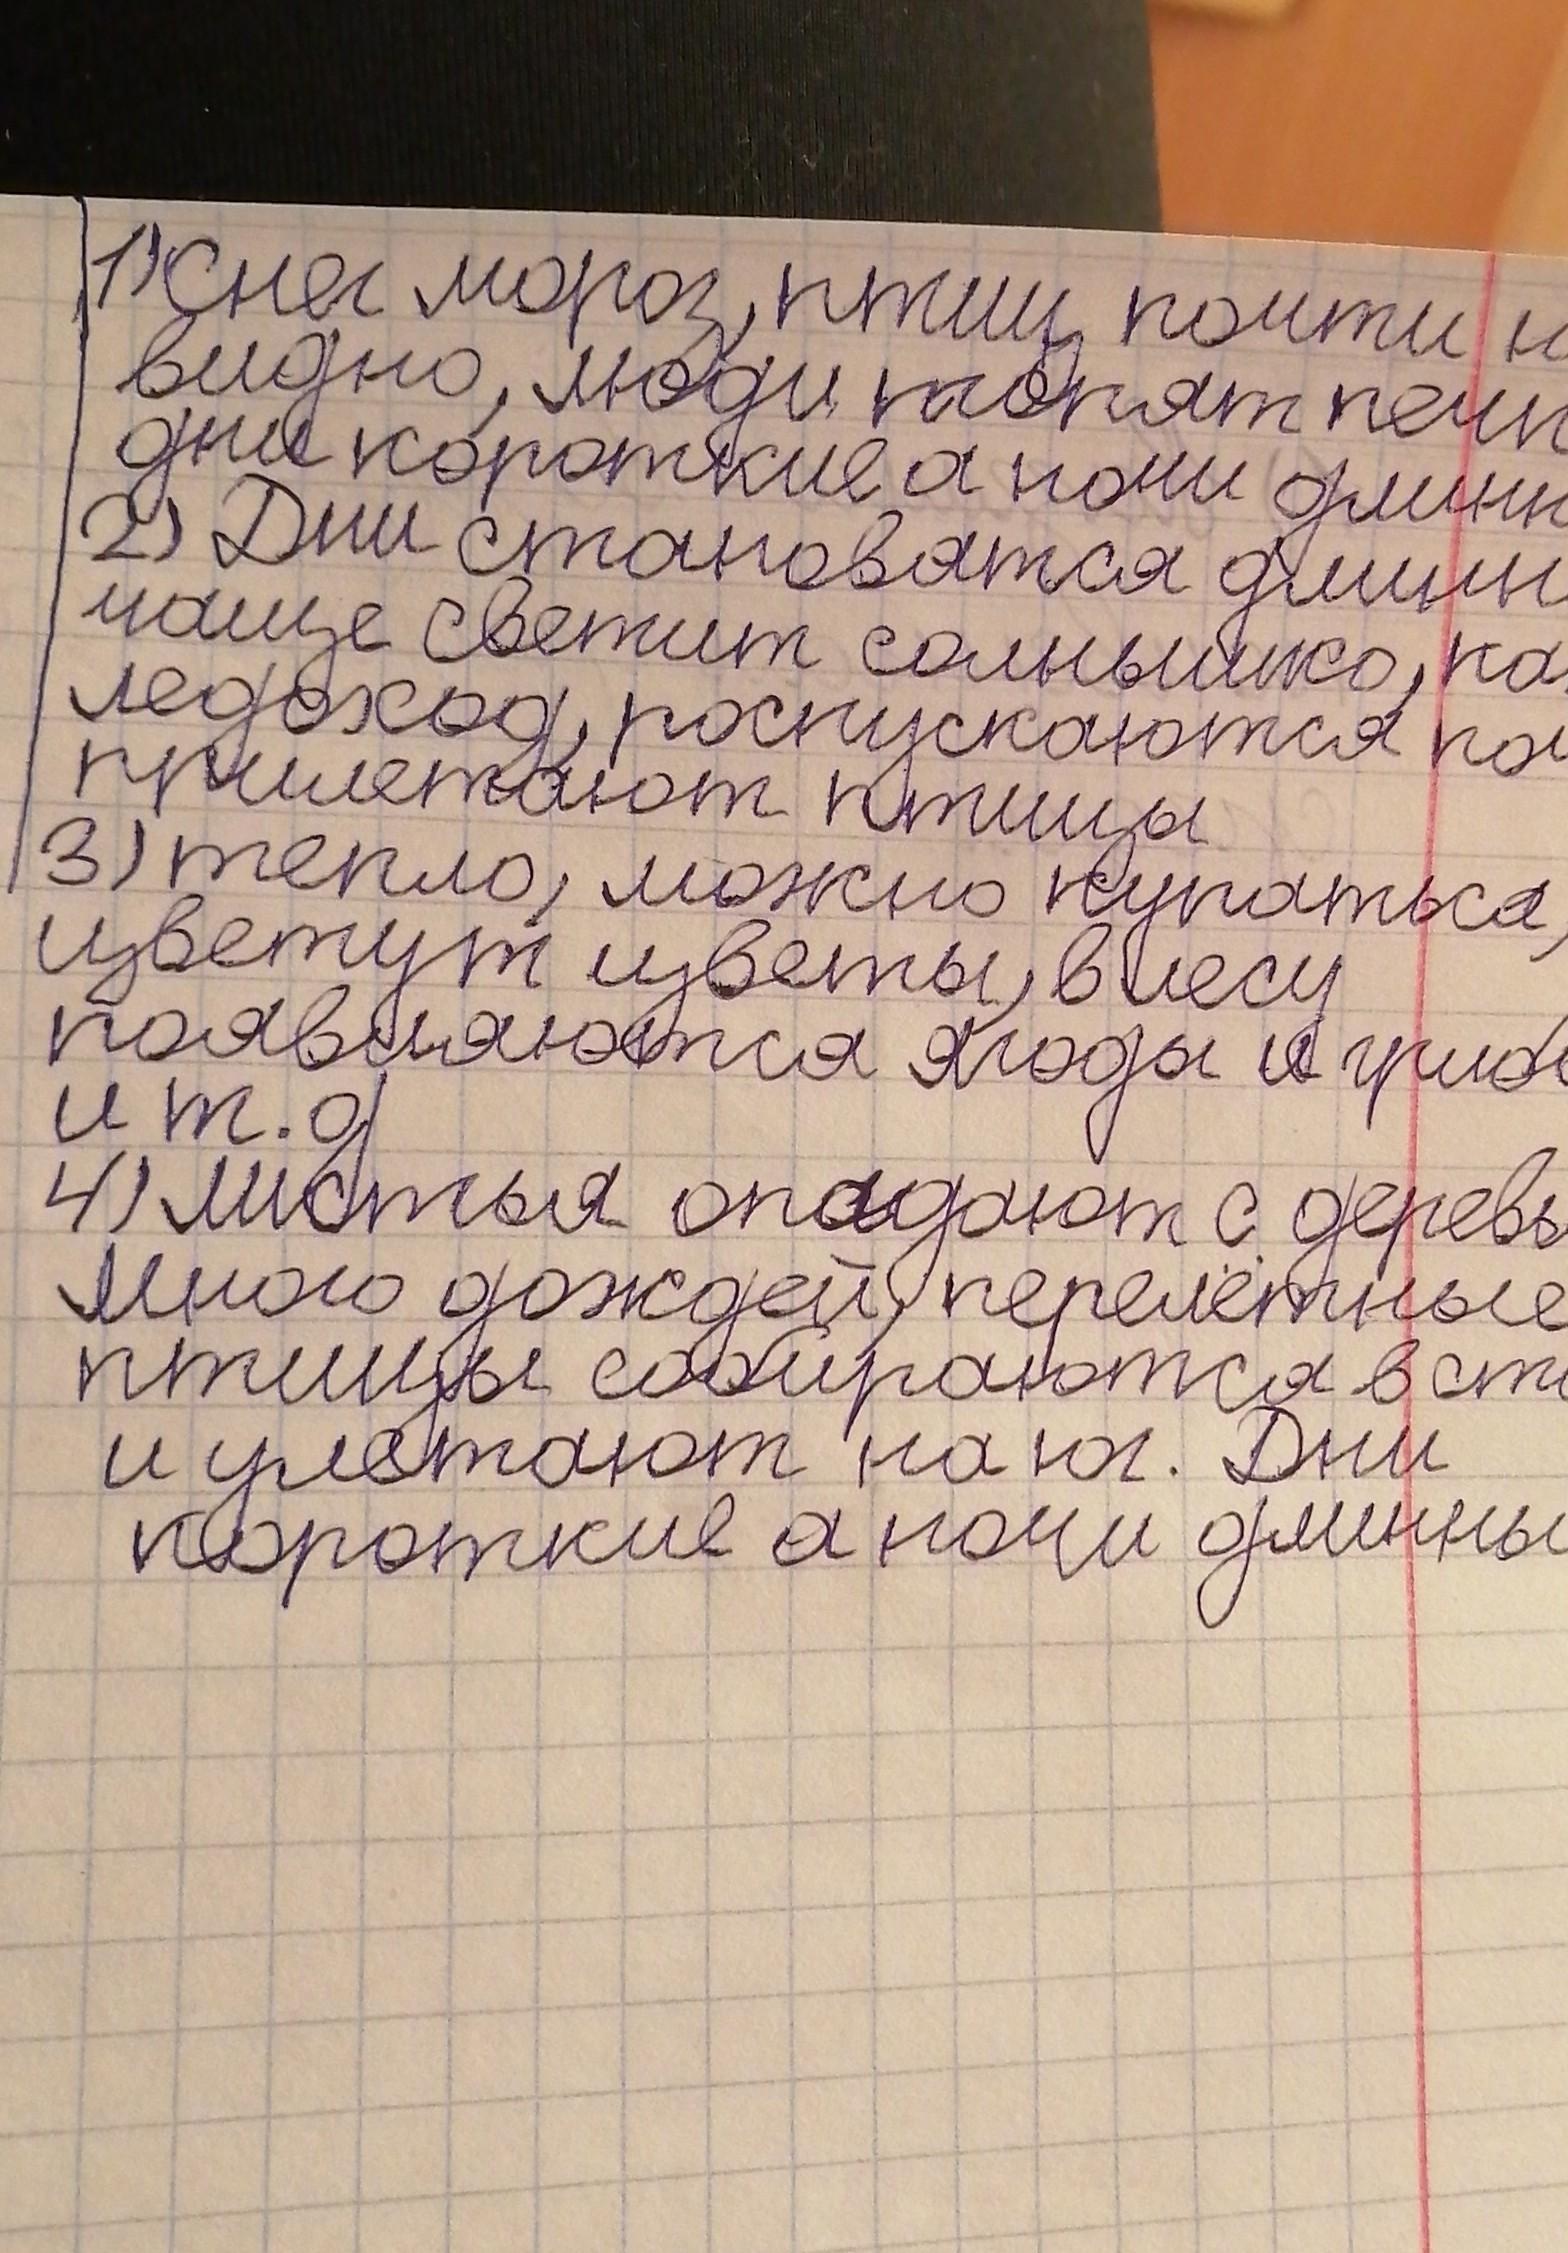 1) Снег мороз, птиц почти
видно, люди топят
дни короткие а ночи
2) Дни становятся
чаще светит солнышко,
ледоход, роспускаются
прилетают птицы
3) тепло, можно купаться,
цветут цветы, в лесу
появляются ягоды и
и т.д
4) листья опадают с
Много дождей, перелётные
птицы собираются в
и улетают на юг. Дни
короткие а ночи